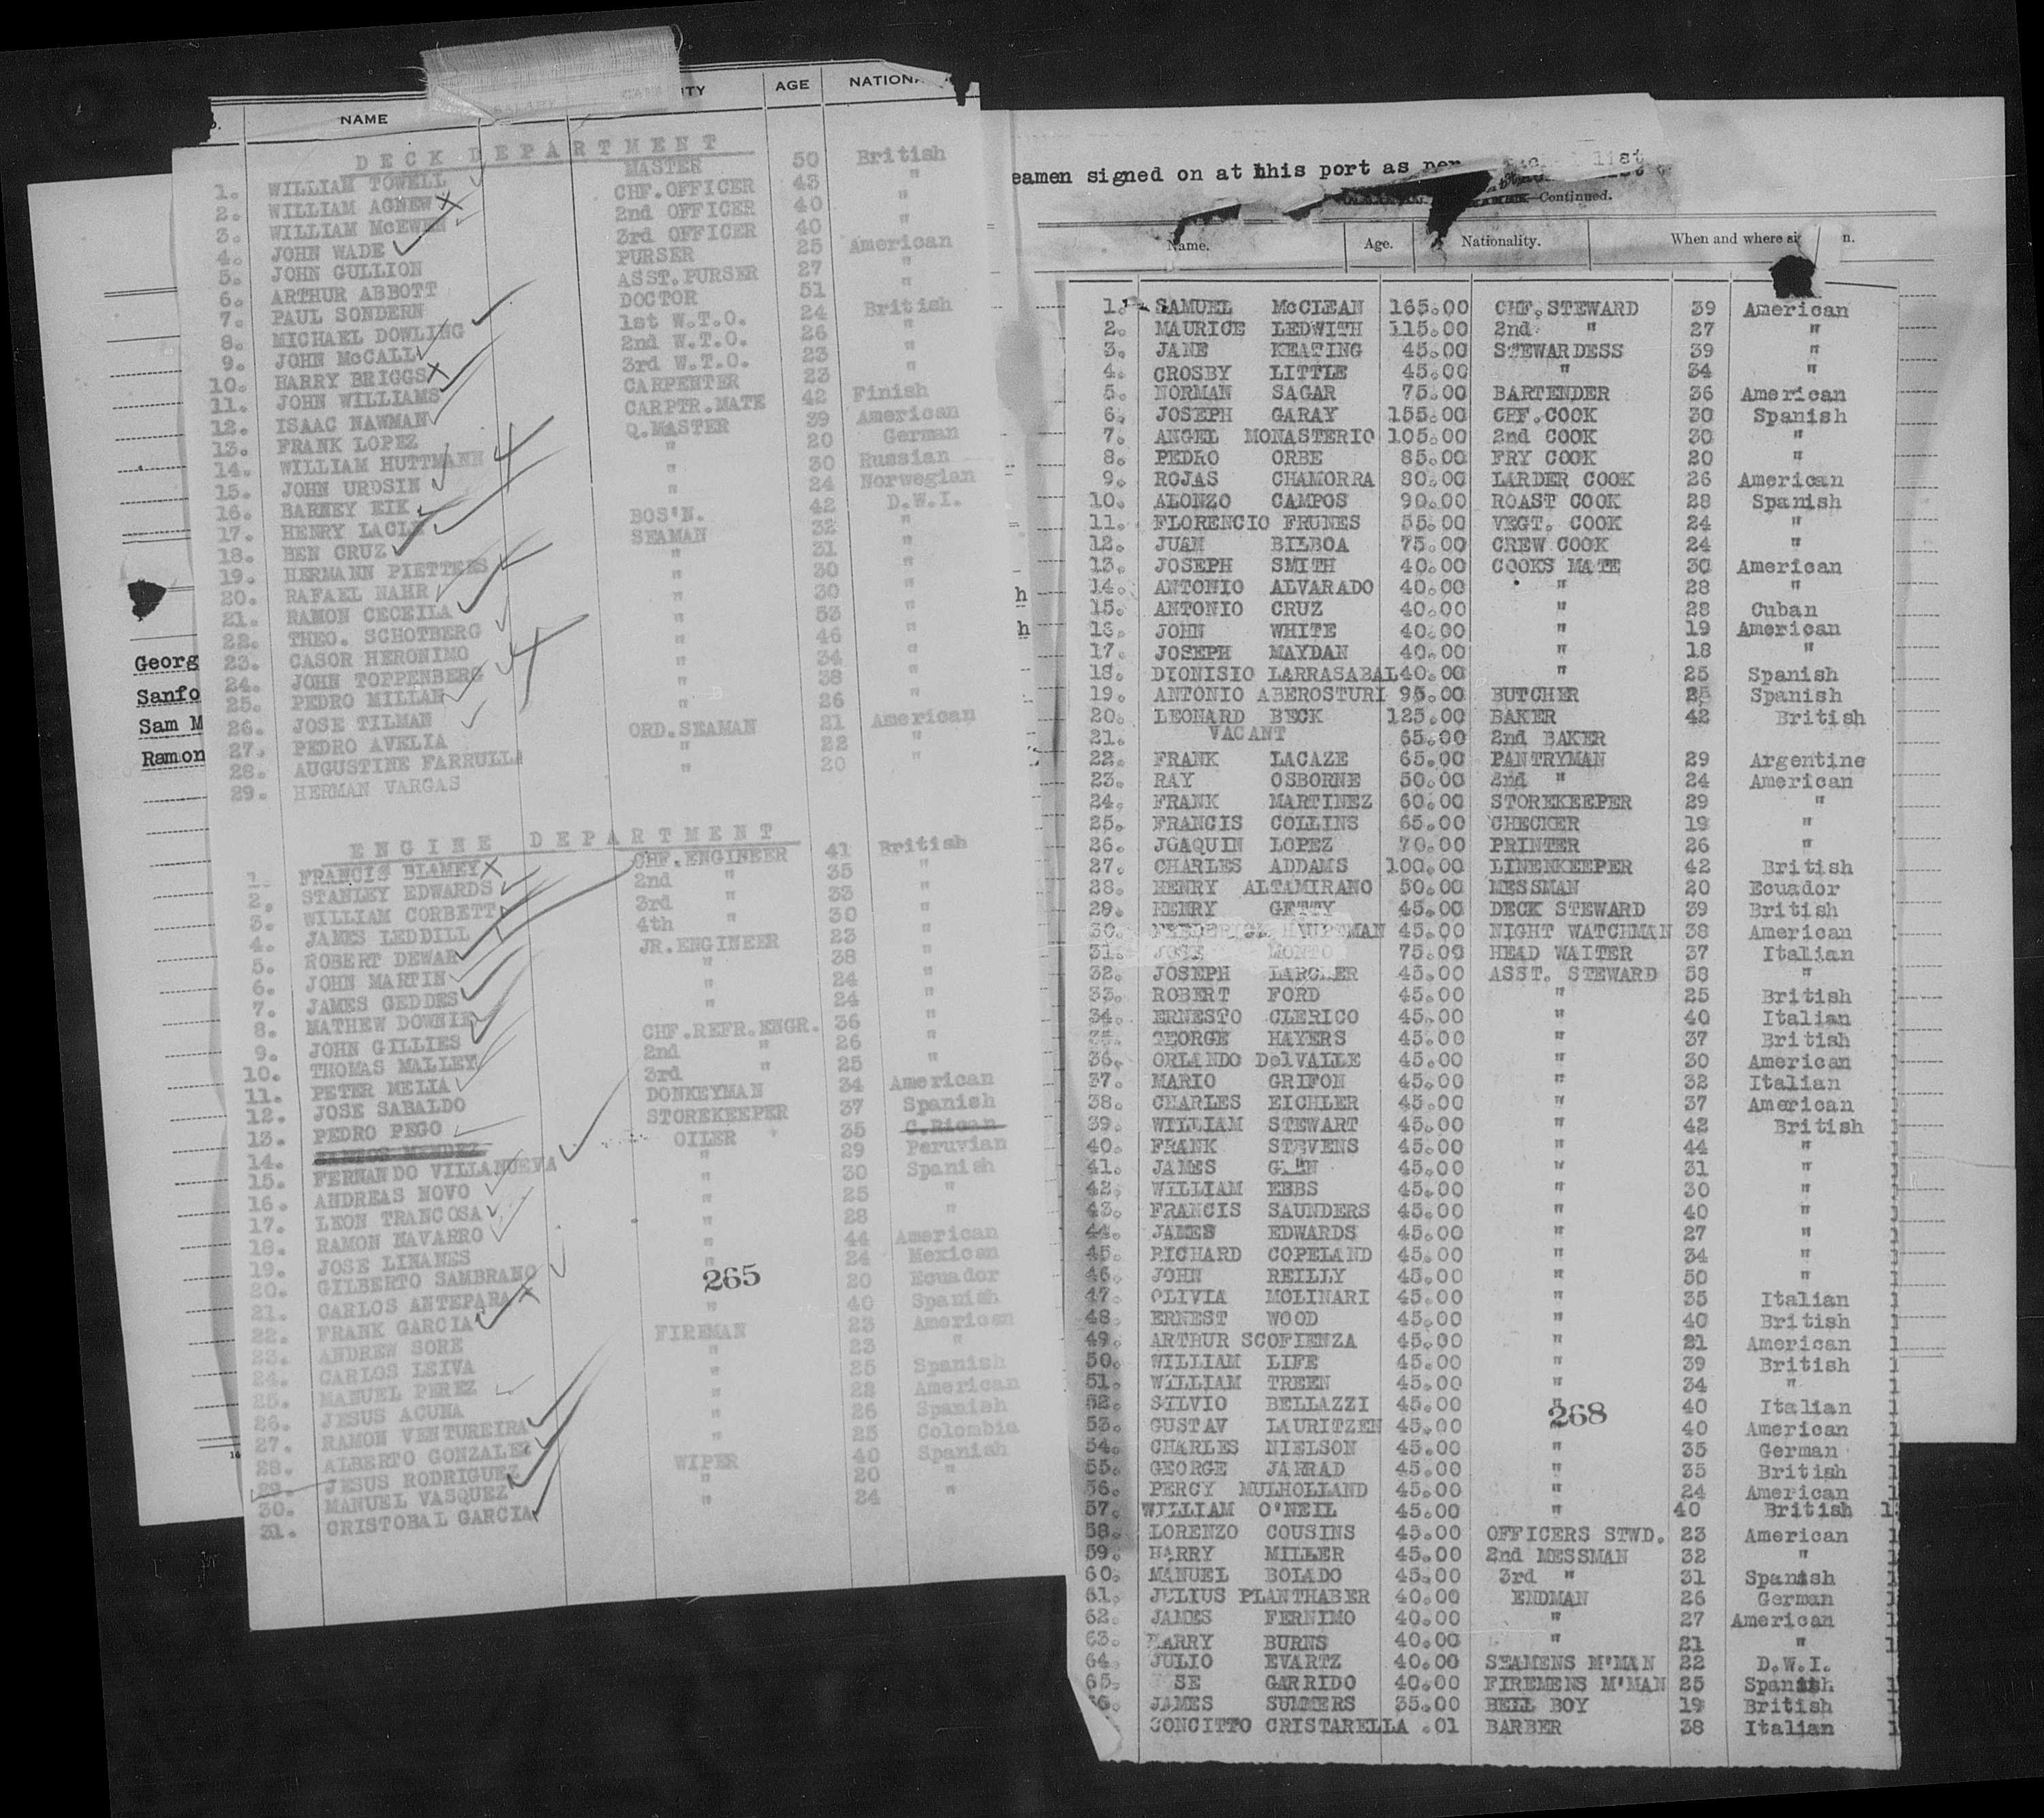 NAME AGE
DECK DEPARTMENT
1. WILLIAM TOWELL MASTER 50 British
2. WILLIAM AGNEW CHF.OFFICER 43 "
3. WILLIAM McEWEN 2nd OFFICER 40 "
4. JOHN WADE 3rd OFFICER 40 "
5. JOHN GULLION PURSER 25 American
6. ARTHUR ABBOTT ASST.PURSER 27 "
7. PAUL SONDERN DOCTOR 51 "
8. MICHAEL DOWLING 1st W.T.O. 24 British
9. JOHN McCALL 2nd W.T.O. 26 "
10. HARRY BRIGGS 3rd W.T.O. 23 "
11. JOHN WILLIAMS CARPENTER 23 "
12. ISAAC NAWMAN CARPTR.MATE 42 Finish
13. FRANK LOPEZ Q.MASTER 39 American
14. WILLIAM HUTTMANN " 20 German
15. JOHN URDSIN " 30 Russian
16. BARNEY EIK " 24 Norwegian
17. HENRY LACLE BOS'N. 42 D.W.I.
18. BEN CRUZ SEAMAN 32 "
19. HERMANN PIETTERS " 31 "
20. RAFAEL NAHR " 30 "
21. RAMON CECEILA " 30 "
22. THEO. SCHOTBERG " 53 "
23. CASOR HERONIMO " 46 "
24. JOHN TOPPENBERG " 34 "
25. PEDRO MILLAN " 38 "
26. JOSE TILMAN " 26 "
27. PEDRO AVELIA ORD.SEAMAN 21 American
28. AUGUSTINE FARRULLA " 22 "
29. HERMAN VARGAS " 20 "
ENGINE DEPARTMENT
1. FRANCIS BLAMEY CHF.ENGINEER 41 British
2. STANLEY EDWARDS 2nd " 35 "
3. WILLIAM CORBETT 3rd " 33 "
4. JAMES LEDDILL 4th " 30 "
5. ROBERT DEWAR JR.ENGINEER 23 "
6. JOHN MARTIN " 38 "
7. JAMES GEDDES " 24 "
8. MATHEW DOWNIE " 24 "
9. JOHN GILLIES CHF.REFR.ENGR. 36 "
10. THOMAS MALLEY 2nd " 26 "
11. PETER MELIA 3rd " 25 "
12. JOSE SABALDO DONKEYMAN 34 American
13. PEDRO PEGO STOREKEEPER 37 Spanish
14. SANTOS MENDEZ OILER 35 C.Rican
15. FERNANDO VILLANUEVA " 29 Peruvian
16. ANDREAS NOVO " 30 Spanish
17. LEON TRANCOSA " 25 "
18. RAMON NAVARRO " 28 "
19. JOSE LINANES " 44 American
20. GILBERTO SAMBRANO " 24 Mexican
21. CARLOS ANTEPARA " 20 Ecuador
22. FRANK GARCIA " 40 Spanish
23. ANDREW SORE FIREMAN 23 American
24. CARLOS LEIVA " 23 "
25. MANUEL PEREZ " 25 Spanish
26. JESUS ACUNA " 28 American
27. RAMON VENTUREIRA " 26 Spanish
28. ALBERTO GONZALEZ " 25 Colombia
29. JESUS RODRIGUEZ WIPER 40 Spanish
30. MANUEL VASQUEZ " 20 "
31. CRISTOBAL GARCIA " 24 "
265
Georg
Sanfo
Sam M
Ramon
eamen signed on at this port as per list
Continued.
Name. Age. Nationality. When and where si n.
1. SAMUEL McCLEAN 165.00 CHF.STEWARD 39 American
2. MAURICE LEDWITH 115.00 2nd " 27 "
3. JANE KEATING 45.00 STEWARDESS 39 "
4. CROSBY LITTLE 45.00 " 34 "
5. NORMAN SAGAR 75.00 BARTENDER 36 American
6. JOSEPH GARAY 155.00 CHF.COOK 30 Spanish
7. ANGEL MONASTERIO 105.00 2nd COOK 30 "
8. PEDRO ORBE 85.00 FRY COOK 20 "
9. ROJAS CHAMORRA 80.00 LARDER COOK 26 American
10. ALONZO CAMPOS 90.00 ROAST COOK 28 Spanish
11. FLORENCIO FRUNES 55.00 VEGT. COOK 24 "
12. JUAN BILBOA 75.00 CREW COOK 24 "
13. JOSEPH SMITH 40.00 COOKS MATE 30 American
14. ANTONIO ALVARADO 40.00 " 28 "
15. ANTONIO CRUZ 40.00 " 28 Cuban
16. JOHN WHITE 40.00 " 19 American
17. JOSEPH MAYDAN 40.00 " 18 "
18. DIONISIO LARRASABAL 40.00 " 25 Spanish
19. ANTONIO ABEROSTURI 95.00 BUTCHER 25 Spanish
20. LEONARD BECK 125.00 BAKER 42 British
21. VACANT 65.00 2nd BAKER
22. FRANK LACAZE 65.00 PANTRYMAN 29 Argentine
23. RAY OSBORNE 50.00 2nd " 24 American
24. FRANK MARTINEZ 60.00 STOREKEEPER 29 "
25. FRANCIS COLLINS 65.00 CHECKER 19 "
26. JOAQUIN LOPEZ 70.00 PRINTER 26 "
27. CHARLES ADDAMS 100.00 LINENKEEPER 42 British
28. HENRY ALTAMIRANO 50.00 MESSMAN 20 Ecuador
29. HENRY GETTY 45.00 DECK STEWARD 39 British
30. FREDERICK HAUPTMAN 45.00 NIGHT WATCHMAN 38 American
31. JOSE MONTO 75.00 HEAD WAITER 37 Italian
32. JOSEPH LARCHER 45.00 ASST. STEWARD 58 "
33. ROBERT FORD 45.00 " 25 British
34. ERNESTO CLERICO 45.00 " 40 Italian
35. GEORGE HAYERS 45.00 " 37 British
36. ORLANDO DelVALLE 45.00 " 30 American
37. MARIO GRIFON 45.00 " 32 Italian
38. CHARLES EICHLER 45.00 " 37 American
39. WILLIAM STEWART 45.00 " 42 British
40. FRANK STEVENS 45.00 " 44 "
41. JAMES GLEN 45.00 " 31 "
42. WILLIAM EBBS 45.00 " 30 "
43. FRANCIS SAUNDERS 45.00 " 40 "
44. JAMES EDWARDS 45.00 " 27 "
45. RICHARD COPELAND 45.00 " 34 "
46. JOHN REILLY 45.00 " 50 "
47. OLIVIA MOLINARI 45.00 " 35 Italian
48. ERNEST WOOD 45.00 " 40 British
49. ARTHUR SCOFIENZA 45.00 " 21 American
50. WILLIAM LIFE 45.00 " 39 British
51. WILLIAM TREEN 45.00 " 34 "
52. SILVIO BELLAZZI 45.00 " 40 Italian
268
53. GUSTAV LAURITZEN 45.00 40 American
54. CHARLES NIELSON 45.00 " 35 German
55. GEORGE JARRAD 45.00 " 35 British
56. PERCY MULHOLLAND 45.00 " 24 American
57. WILLIAM O'NEIL 45.00 " 40 British
58. LORENZO COUSINS 45.00 OFFICERS STWD. 23 American
59. HARRY MILLER 45.00 2nd MESSMAN 32 "
60. MANUEL BOLADO 45.00 3rd " 31 Spanish
61. JULIUS PLANTHABER 40.00 ENDMAN 26 German
62. JAMES FERNIMO 40.00 " 27 American
63. HARRY BURNS 40.00 " 21 "
64. JULIO EVARTZ 40.00 SEAMENS M'MAN 22 D.W.I.
65. SE GARRIDO 40.00 FIREMENS M'MAN 25 Spanish
66. JAMES SUMMERS 35.00 BELL BOY 19 British
CONCITTO CRISTARELLA .01 BARBER 38 Italian